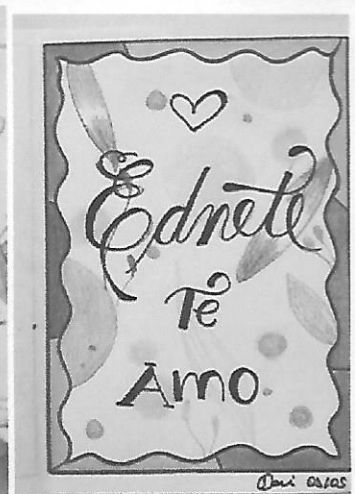 Ednete
Te
Amo
Davi 03/05